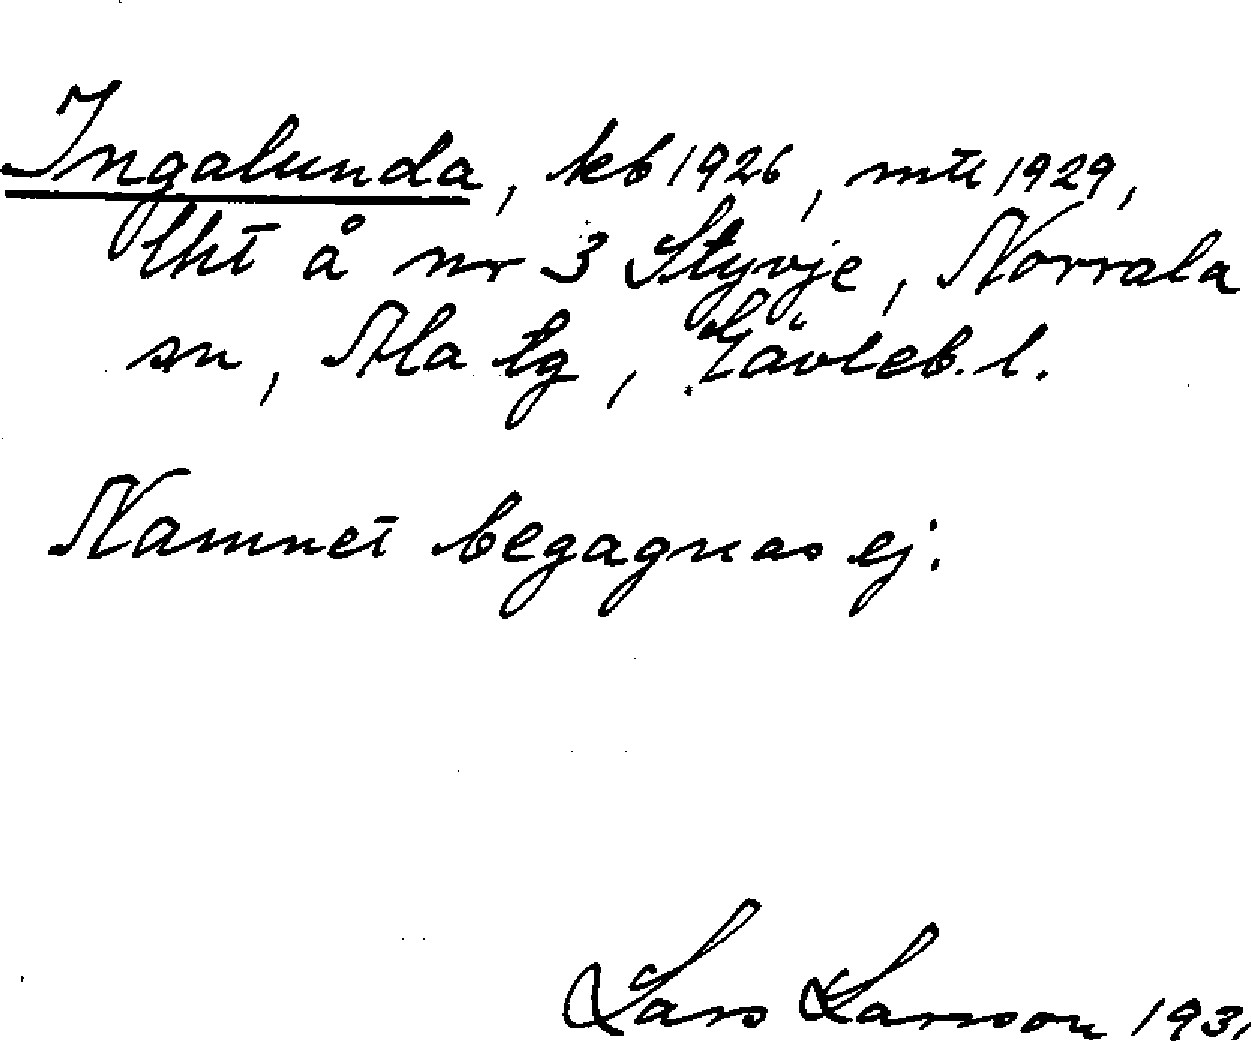 Ingalunda, kb 1926, mtl 1929,
lht å nr 3 Styvje, Norrala
sn, Ala tg, Gävleb. l.
Namnet begagnas ej.
Lars Larsson 1931